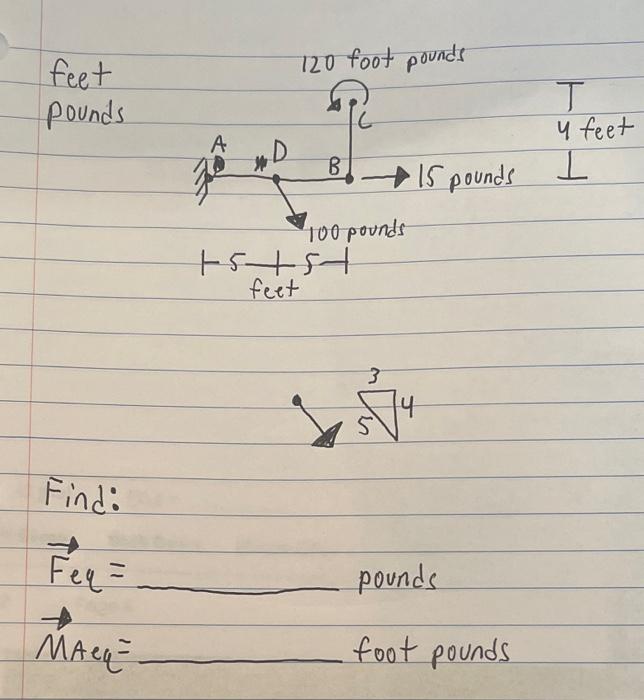 feet
pounds
120 foot pounds
C
4 feet
A
D
B
15 pounds
100 pounds
5 5
feet
3
4
5
Find:
Feq = ______ pounds
MAeq= ______ foot pounds